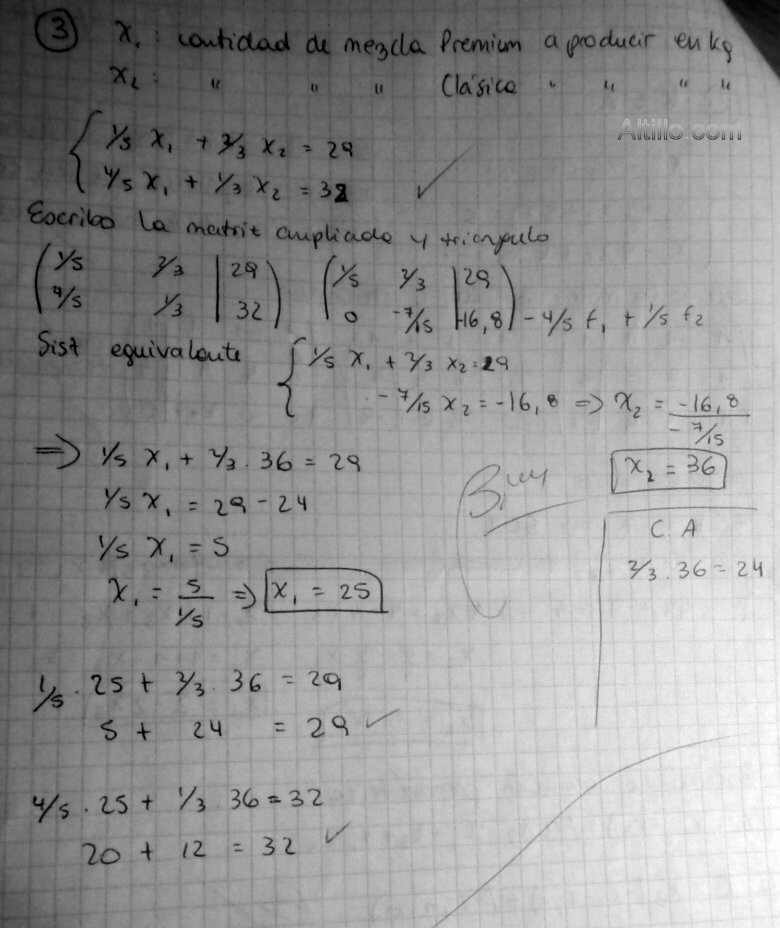 ③ x₁ : cantidad de mezcla Premium a producir en kg
x₂ : " " " Clásica " " " "
Altillo.com
1/5 x₁ + 2/3 x₂ = 29
4/5 x₁ + 1/3 x₂ = 32
Escribo la matriz ampliada y triangulo
1/5 2/3 | 29 1/5 2/3 | 29
4/5 1/3 | 32 0 -7/15 | -16,8 - 4/5 f₁ + 1/5 f₂
Sist equivalente 1/5 x₁ + 2/3 x₂ = 29
- 7/15 x₂ = -16,8 => x₂ = -16,8 / - 7/15
=> 1/5 x₁ + 2/3 . 36 = 29
x₂ = 36
1/5 x₁ = 29 - 24
1/5 x₁ = 5
x₁ = 5 / 1/5 => x₁ = 25
C. A
2/3 . 36 = 24
1/5 . 25 + 2/3 . 36 = 29
5 + 24 = 29 ✓
4/5 . 25 + 1/3 36 = 32
20 + 12 = 32 ✓